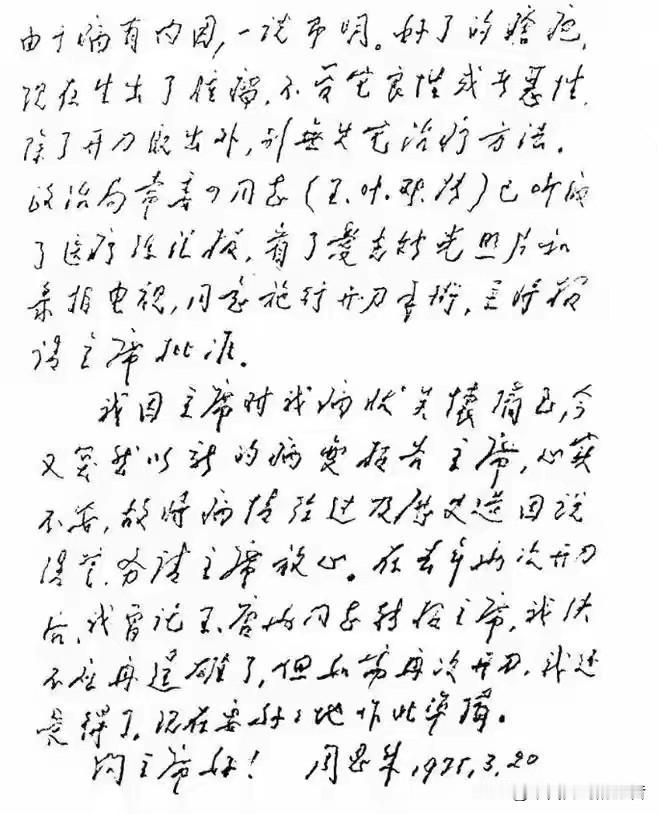 由于病有内因,一说即明。好了的疮疤,
现在生出了肿瘤,不管它良性或者恶性,
除了开刀取出外,别無其它治疗方法。
政治局常委四同志(王.叶.邓.张)已听取
了医疗组汇报,看了爱克斯光照片和
录相电视,同意施行开刀手術,並将报
请主席批准。
我因主席对我病状关懷備至,今
又突然以新的病变报告主席,心实
不安,故将病情经过及历史造因说
清楚,务请主席放心。在去年两次开刀
后,我曾托王.唐两同志转报主席,我决
不应再逞雄了,但如需再次开刀,我还
受得了。现在要好々地作此準備。
问主席好! 周恩来 1975.3.20